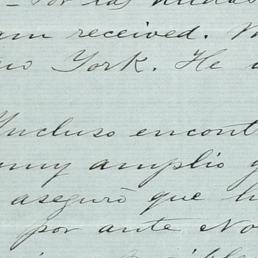 Por las
am received.
York. He
Incluso encont
muy amplio
aseguró que h
por ante No